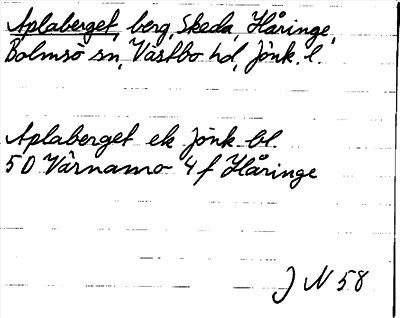 Aplaberget, berg, Skeda, Håringe,
Bolmsö sn, Västbo hd, Jönk. l.
Aplaberget ek Jönk. bl.
5 D Värnamo 4 f Håringe
J N 58